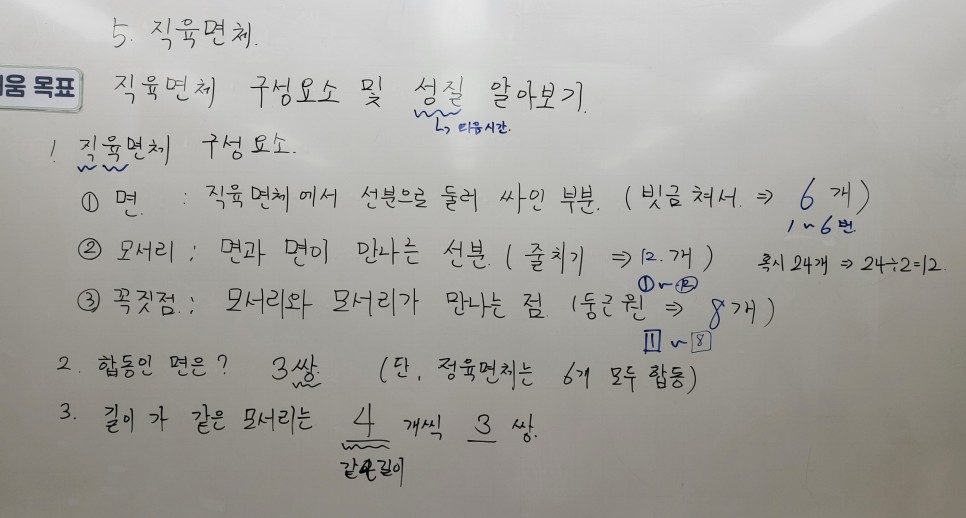 5. 직육면체.
움 목표
직육면체 구성요소 및 성질 알아보기.
↳ 다음시간.
1. 직육면체 구성요소.
① 면. : 직육면체에서 선분으로 둘러 싸인 부분. (빗금쳐서. ⇒ 6개)
1~6번.
② 모서리 : 면과 면이 만나는 선분. (줄치기 ⇒ 12.개) 혹시 24개 ⇒ 24÷2=12.
①~⑫
③ 꼭짓점. : 모서리와 모서리가 만나는 점. (둥근원 ⇒ 8개)
1 ~ 8
2. 합동인 면은? 3쌍. (단, 정육면체는 6개 모두 합동)
3. 길이가 같은 모서리는 4 개씩 3 쌍.
같은길이